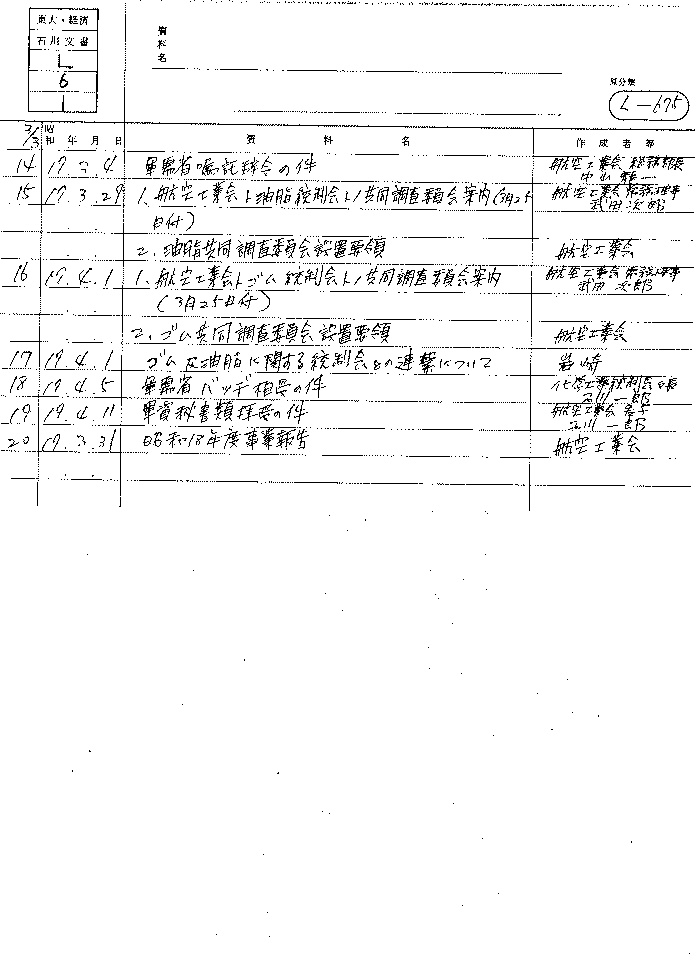 東大・経済
石川文書
L
6
1
資料名
原分類
L-675
3/3
昭和 年 月 日 資料名 作成者等
14 19.3.4 軍需省嘱託辞令の件 航空工業会 総務部長
15 19.3.29 1. 航空工業会ト油脂統制会トノ共同調査委員会案内(3月25 航空工業会 常務理事
日付) 武田次郎
2. 油脂共同調査委員会設置要領 航空工業会
16 19.4.1 1. 航空工業会トゴム統制会トノ共同調査委員会案内 航空工業会 常務理事
(3月25日付) 武田 次郎
2. ゴム共同調査委員会設置要領 航空工業会
17 19.4.1 ゴム及油脂に関する統制会との連繋について 岩崎
18 19.4.5 軍需省バッヂ 化学工業統制会会長
石川一郎
19 19.4.11 の件 航空工業会
石川一郎
20 19.3.31 昭和18年度事業報告 航空工業会